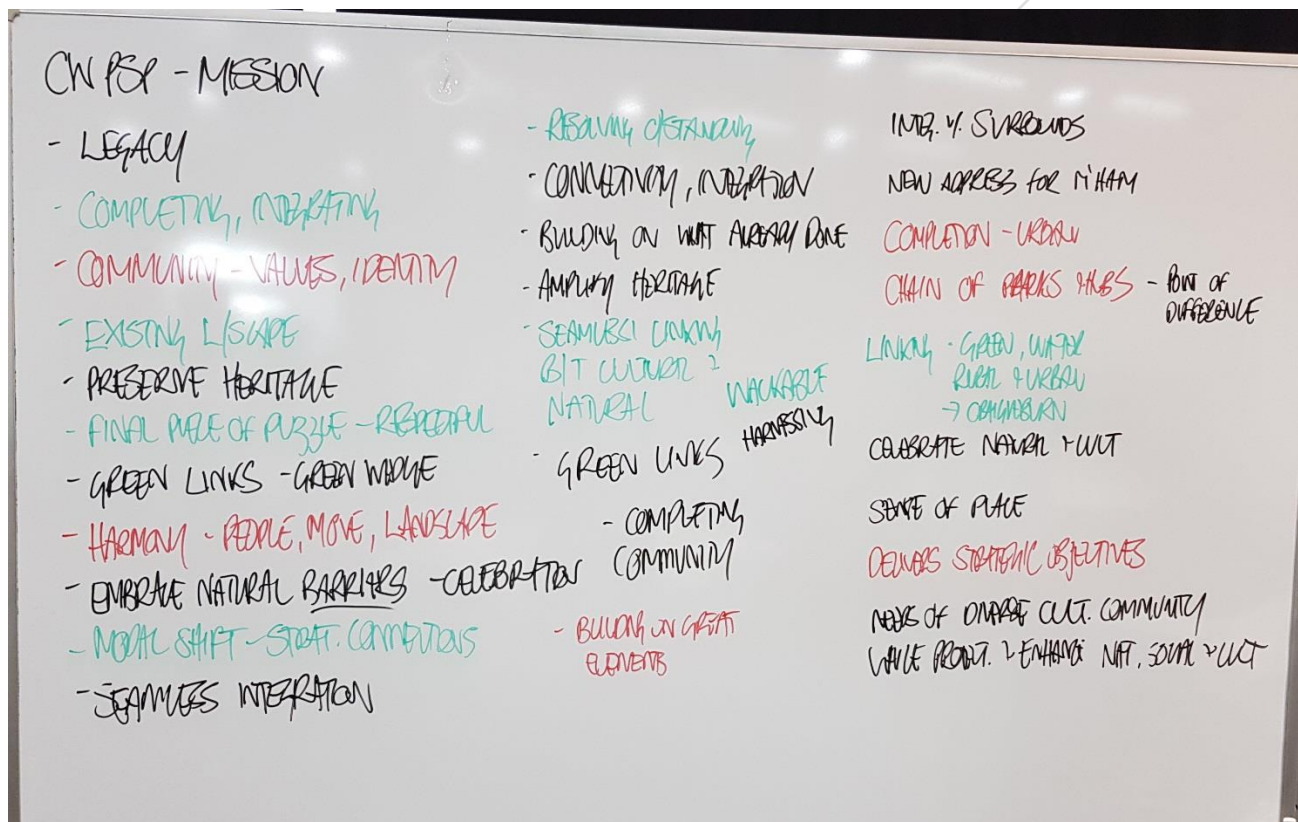 CW PSP - MISSION
- LEGACY
- COMPLETING, INTEGRATING
- COMMUNITY - VALUES, IDENTITY
- EXISTING L/SCAPE
- PRESERVE HERITAGE
- FINAL PIECE OF PUZZLE - RESPECTFUL
- GREEN LINKS - GREEN WEDGE
- HARMONY - PEOPLE, MOVE, LANDSCAPE
- EMBRACE NATURAL BARRIERS - CELEBRATION
- MODAL SHIFT - STRAT. CONNECTIONS
- SEAMLESS INTEGRATION
- RESOLVING O/STANDING
- CONNECTIVITY, INTEGRATION
- BUILDING ON WHAT ALREADY DONE
- AMPLIFY HERITAGE
- SEAMLESS LINKING
B/T CULTURAL &
NATURAL
WALKABLE
HARNESSING
- GREEN LINKS
- COMPLETING
COMMUNITY
- BUILDING ON GREAT
ELEMENTS
INTEG. W. SURROUNDS
NEW ADDRESS FOR M'HAM
COMPLETION - URBAN
CHAIN OF PARKS & HUBS - POINT OF
DIFFERENCE
LINKING - GREEN, WATER
RURAL & URBAN
→
CELEBRATE NATURAL & CULT
SENSE OF PLACE
DELIVERS STRATEGIC OBJECTIVES
NEEDS OF DIVERSE CULT. COMMUNITY
WHILE PROTECT. & ENHANCE NAT, SOCIAL & CULT